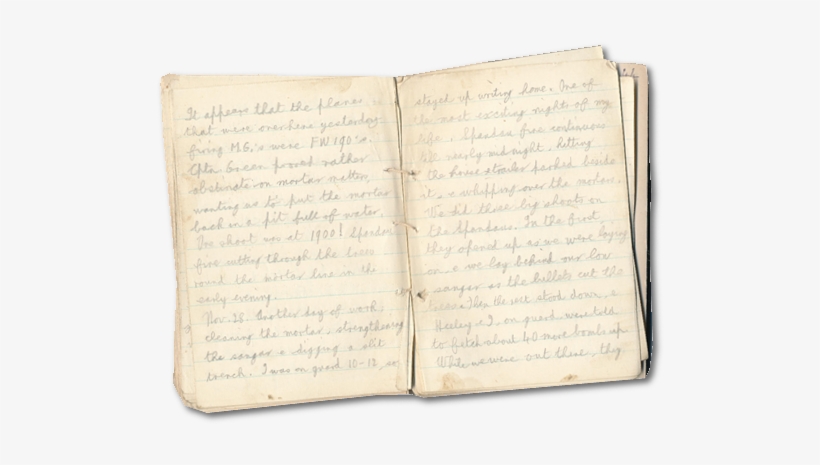 It appears that the planes
that were over here yesterday
firing M.G.'s were FW 190's.
Cptn Green proved rather
obstinate on mortar matters,
wanting us to put the mortar
back in a pit full of water.
One shoot was at 1900! Spandau
fire cutting through the trees
round the mortar line in the
early evening.
Nov. 28. Another day of work,
cleaning the mortar, strengthening
the sangar & digging a slit
trench. I was on guard 10-12, so
stayed up writing home. One of
the most exciting nights of my
life. Spandau fire continuous
till nearly midnight, hitting
the house & trailer parked beside
it, & whipping over the mortars.
We did three big shoots on
the Spandaus. In the first
they opened up as we were laying
on, & we lay behind our low
sangar as the bullets cut the
Then the rest stood down, &
Heeley & I, on guard, were told
to fetch about 40 more bombs up.
While we were out there, they